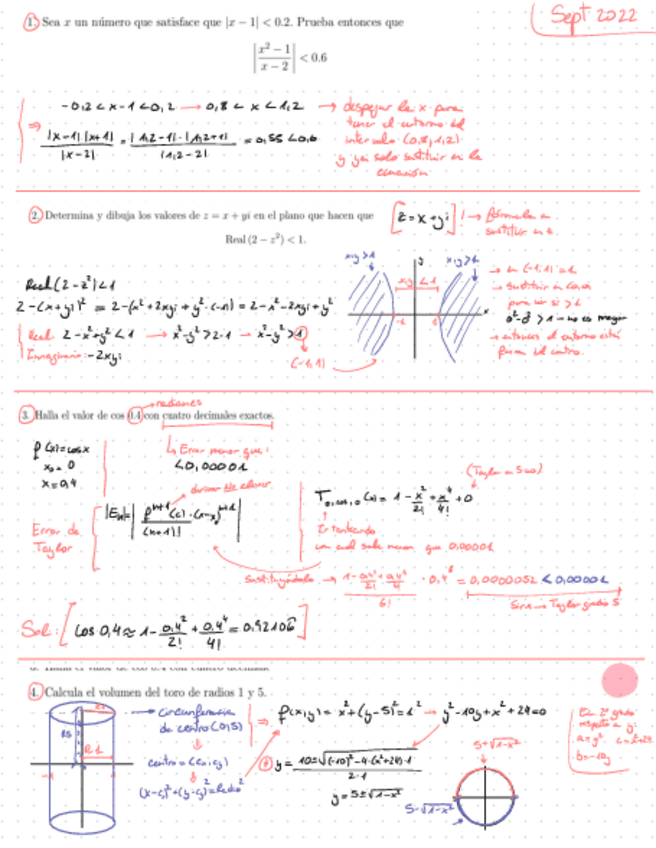 Sept 2022
1. Sea x un número que satisface que |x − 1| < 0.2. Prueba entonces que
|x² − 1 / x − 2| < 0.6
-0,2 < x-1 < 0,2 → 0,8 < x < 1,2 → despejar la x para
tener el entorno del
intervalo (0,8, 1,2)
y ya solo sustituir en la
ecuación
⇒ |x-1|·|x+1| / |x-2| = |1,2-1|·|1,2+1| / |1,2-2| = 0,55 < 0,6
2. Determina y dibuja los valores de z = x + yi en el plano que hacen que
Real (2 − z²) < 1.
[z = x+yi]! → fórmula a
sustituir en z.
Real (2-z²) < 1
2-(x+yi)² = 2-(x²+2xyi+y²·(-1)) = 2-x²-2xyi+y²
Real: 2-x²+y² < 1 → x²-y² > 2-1 → x²-y² > 1
Imaginario: -2xyi
(-1,1)
x,y > 1
x,y < 1
y
x
-1
1
→ sustituir en (0,0)
para ver si > 1
0²-0² > 1 → no es mayor
→ entonces el entorno está
fuera del centro.
3. Halla el valor de cos 0.4 con cuatro decimales exactos.
radianes
f(x) = cos x
x₀ = 0
x = 0,4
↳ Error menor que:
< 0,00001
Error de
Taylor
|En| = | fⁿ⁺¹(c)·(x-x₀)ⁿ⁺¹ / (n+1)! |
(Taylor en 5 es 0)
T (x) = 1 - x²/2! + x⁴/4! + 0
Ir tanteando
con cual sale menor que 0,00001
Sustituyéndolo → · 0,4⁶ = 0,0000052 < 0,00001
6!
Sirve → Taylor grado 5
Sol: [cos 0,4 ≈ 1 - 0,4²/2! + 0,4⁴/4! = 0,92106]
4. Calcula el volumen del toro de radios 1 y 5.
R5
R1
-1
1
→ Circunferencia
de centro (0,5)
centro = (cx, cy)
(x-c)² + (y-c)² = Radio²
⇒ f(x,y) = x²+(y-5)² = 1² → y²-10y+x²+24 = 0
y = 10±√((-10)²-4·(x²+24)·1) / 2·1
y = 5±√1-x²
5+√1-x²
5-√1-x²
Ec. 2º grado
respecto a y:
a = y² c = x²+24
b = -10y